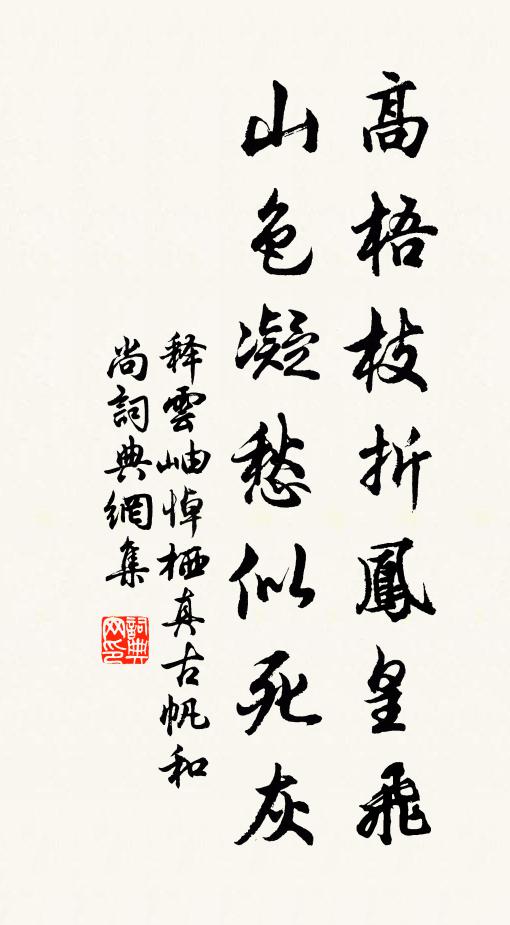 高梧枝折鳳皇飛
山色凝愁似死灰
释雲岫悼栖真古帆和
尚詞典網集
詞典网印